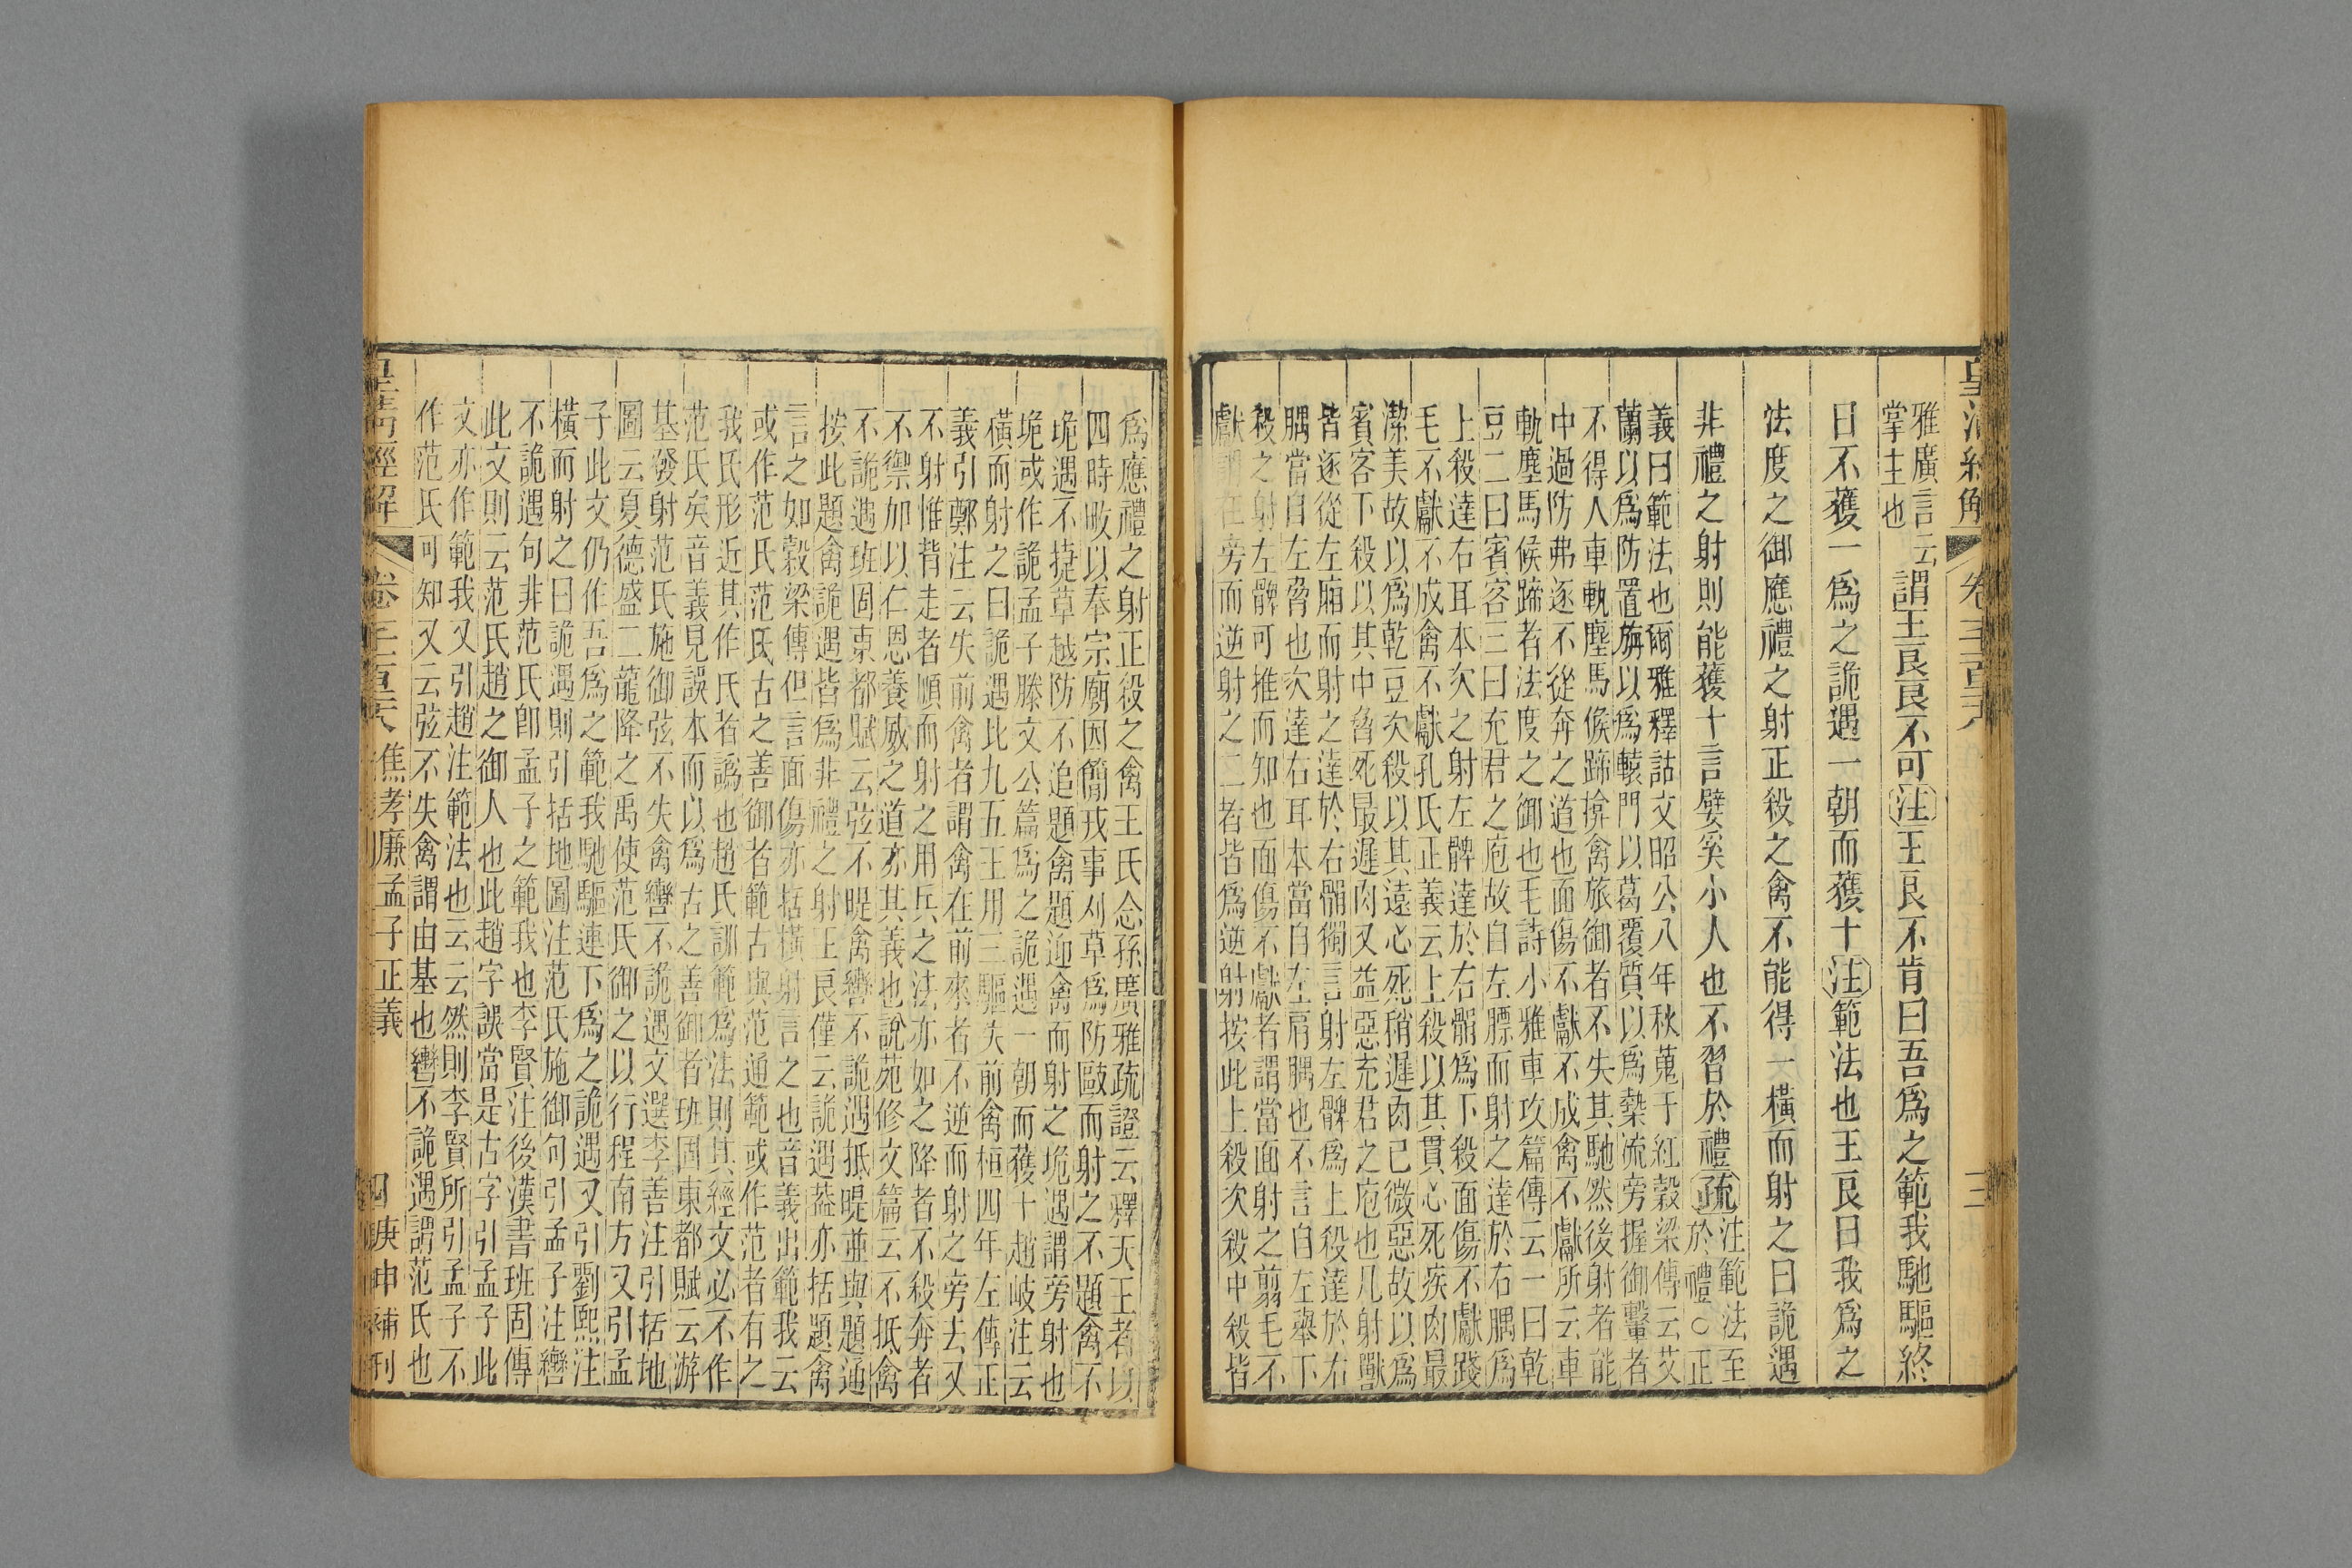 皇清經解 卷 三
雅廣言云
掌主也
謂王良良不可注王良不肯曰吾爲之範我馳驅終
日不獲一爲之詭遇一朝而獲十注範法也王良曰我爲之
法度之御應禮之射正殺之禽不能得一橫而射之曰詭遇
非禮之射則能獲十言嬖奚小人也不習於禮疏
注範法至
於禮○正
義曰範法也爾雅釋詁文昭公八年秋蒐于紅穀梁傳云艾
蘭以爲防置旃以爲轅門以葛覆質以爲槷流旁握御轚者
不得人車軌塵馬候蹄揜禽旅御者不失其馳然後射者能
中過防弗逐不從奔之道也面傷不獻不成禽不獻所云車
軌塵馬候蹄者法度之御也毛詩小雅車攻篇傳云一曰乾
豆二曰賓客三曰充君之庖故自左膘而射之達於右腢爲
上殺達右耳本次之射左髀達於右𩩆爲下殺面傷不獻踐
毛不獻不成禽不獻孔氏正義云上殺以其貫心死疾肉最
潔美故以爲乾豆次殺以其遠心死稍遲肉已微惡故以爲
賓客下殺以其中脅死最遲肉又益惡充君之庖也凡射獸
皆逐從左廂而射之達於右𩩆獨言射左髀爲上殺達於右
腢當自左脅也次達右耳本當自左肩腢也不言自左舉下
殺之射左髀可推而知也面傷不獻者謂當面射之翦毛不
獻謂在旁而逆射之二者皆爲逆射按此上殺次殺中殺皆
爲應禮之射正殺之禽王氏念孫廣雅疏證云釋天王者以
四時畋以奉宗廟因簡戎事刈草爲防敺而射之不題禽不
垝遇不㨗草越防不追題禽題迎禽而射之垝遇謂旁射也
垝或作詭孟子滕文公篇爲之詭遇一朝而獲十趙岐注云
橫而射之曰詭遇比九五王用三驅失前禽桓四年左傳正
義引鄭注云失前禽者謂禽在前來者不逆而射之旁去又
不射惟背走者順而射之用兵之法亦如之降者不殺奔者
不禦加以仁恩養威之道亦其義也說苑修文篇云不抵禽
不詭遇班固東都賦云弦不睼禽轡不詭遇抵睼並與題通
按此題禽詭遇皆爲非禮之射王良僅云詭遇葢亦括題禽
言之如穀梁傳但言面傷亦括橫射言之也音義出範我云
或作范氏范氏古之善御者範古與范通範或作范者有之
我氏形近其作氏者譌也趙氏訓範爲法則其經文必不作
范氏矣音義見誤本而以爲古之善御者班固東都賦云游
基發射范氏施御弦不失禽轡不詭遇文選李善注引括地
圖云夏德盛二龍降之禹使范氏御之以行程南方又引孟
子此文仍作吾爲之範我馳驅連下爲之詭遇又引劉熙注
橫而射之曰詭遇則引括地圖注范氏施御句引孟子注轡
不詭遇句非范氏卽孟子之範我也李賢注後漢書班固傳
此文則云范氏趙之御人也此趙字誤當是古字引孟子此
文亦作範我又引趙注範法也云云然則李賢所引孟子不
作范氏可知又云弦不失禽謂由基也轡不詭遇謂范氏也
皇清經解 卷 焦孝廉孟子正義 四 庚申補刊